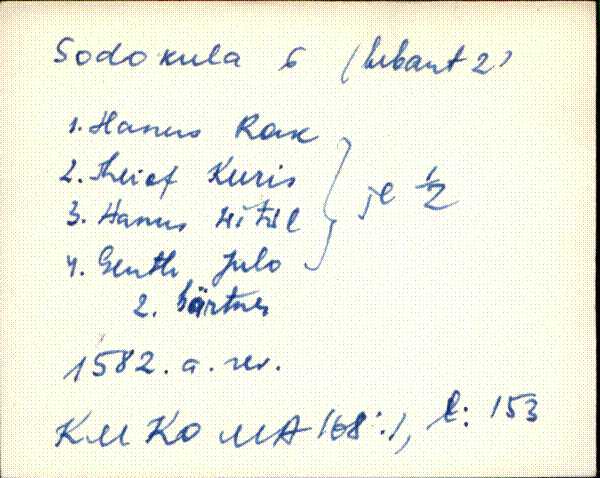 Sodokula 6 (hubant 2)
1. Hanus Rax
2. Kuris
3. Hanus
je 1/2
4. Genth Julo
2. Gärtner
1582. a. rev.
KM KO MA 168:1, l: 153